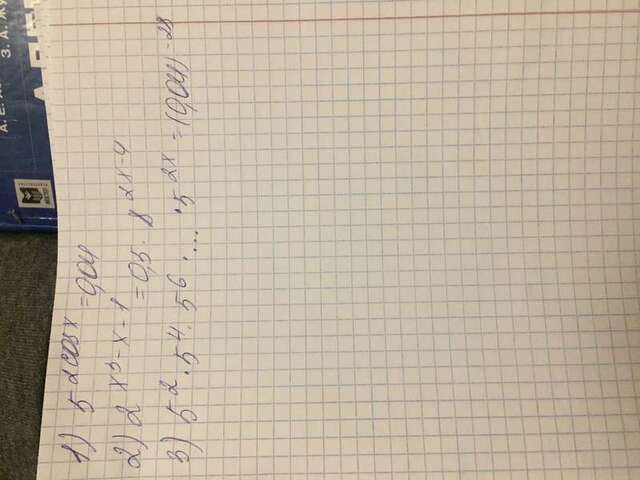 1) 5^2cosx = 0,04
2) 2^x³-x-1 = 0,5 · 8^2x-4
3) 5² · 5⁴ · 5⁶ · .... · 5^2x = (0,04)^-28